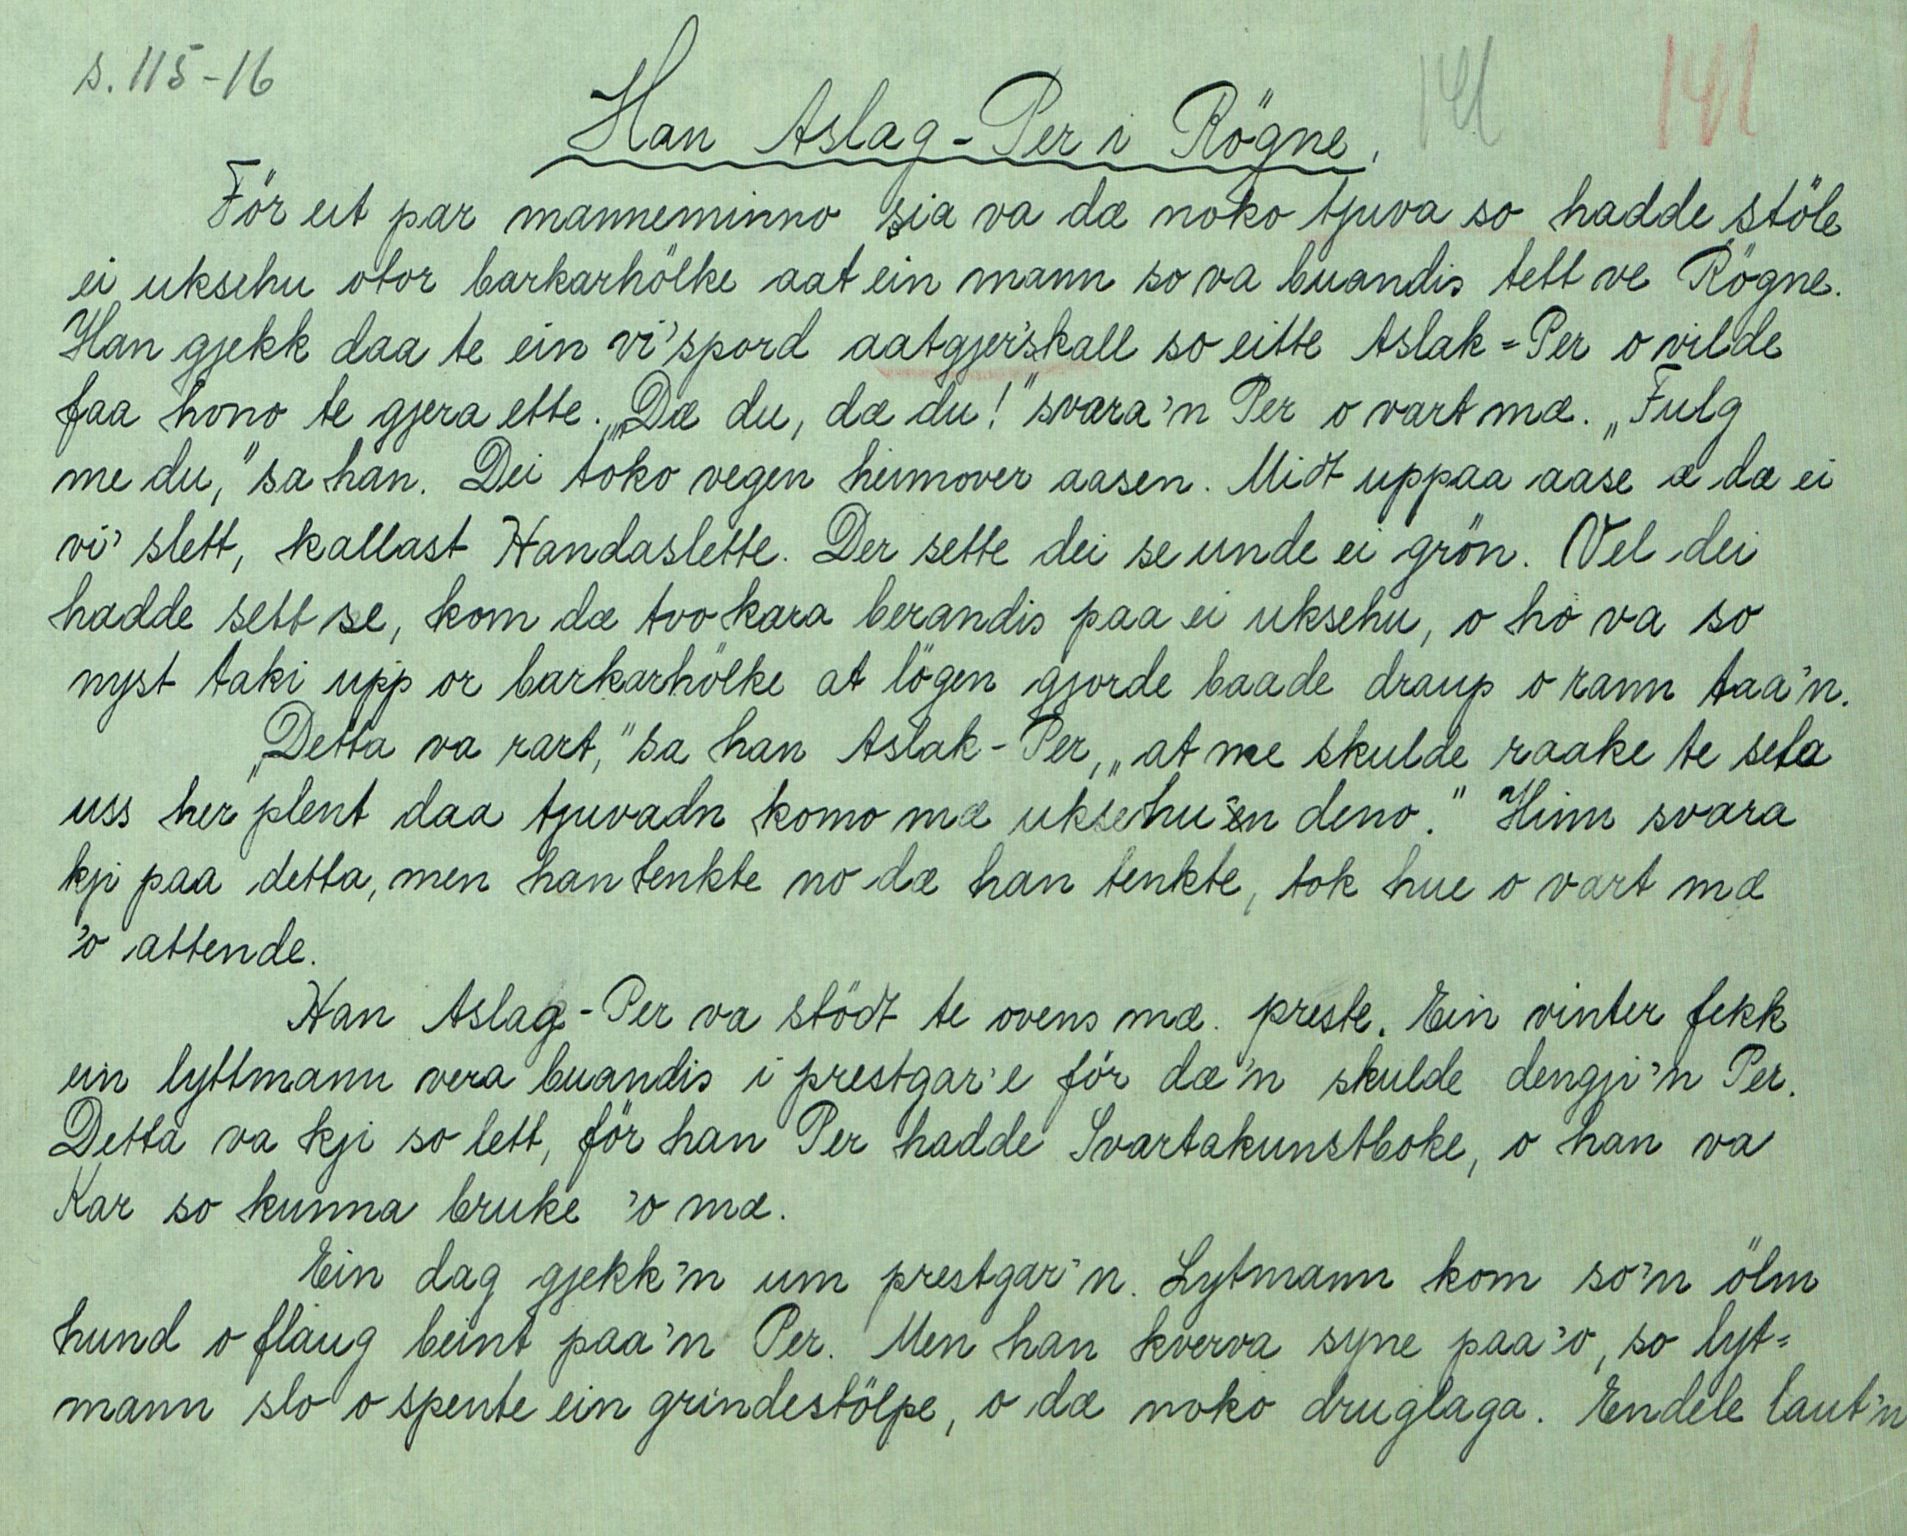 s. 115-16
141 141
Han Aslag-Per i Rögne.
För eit par manneminno sia va dæ noko tjuva so hadde stöle
ei uksehu otor barkarhölke aat ein mann so va buandis tett ve Rögne.
Han gjekk daa te ein vi'spord aatgjer'skall so eitte Aslak=Per o vilde
faa hono te gjera ette. „Dæ du, dæ du!" svara'n Per o vart mæ. „Fulg
me du," sa han. Dei toko vegen heimover aasen. Midt uppaa aase æ dæ ei
vi' slett, kallast Handaslette. Der sette dei se unde ei grön. Vel dei
hadde sett se, kom dæ tvo kara berandis paa ei uksehu, o ho va so
nyst taki upp or barkarhölke at lögen gjorde baade draup o rann taa'n.
„Detta va rart," sa han Aslak-Per, „at me skulde raake te seta
uss her plent daa tjuvadn komo mæ uksehu'en deno." Hinn svara
kji paa detta, men han tenkte no dæ han tenkte, tok hue o vart mæ
'o attende.
Han Aslag-Per va stödt te ovens mæ preste. Ein vinter fekk
ein lyttmann vera buandis i prestgar'e för dæ'n skulde dengji'n Per.
Detta va kji so lett, för han Per hadde Svartakunstboke, o han va
Kar so kunna bruke 'o mæ.
Ein dag gjekk'n um prestgar'n. Lytmann kom so'n ölm
hund o flaug beint paa'n Per. Men han kverva syne paa'o, so lyt=
mann slo o spente ein grindestölpe, o dæ noko druglaga. Endele laut'n